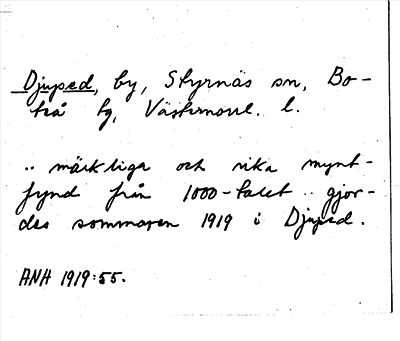 Djuped, by, Styrnäs sn, Bo-
teå tg, Västernorrl. l.
.. märkliga och rika mynt-
fynd från 1000-talet .. gjor-
des sommaren 1919 i Djuped.
ANH 1919:55.